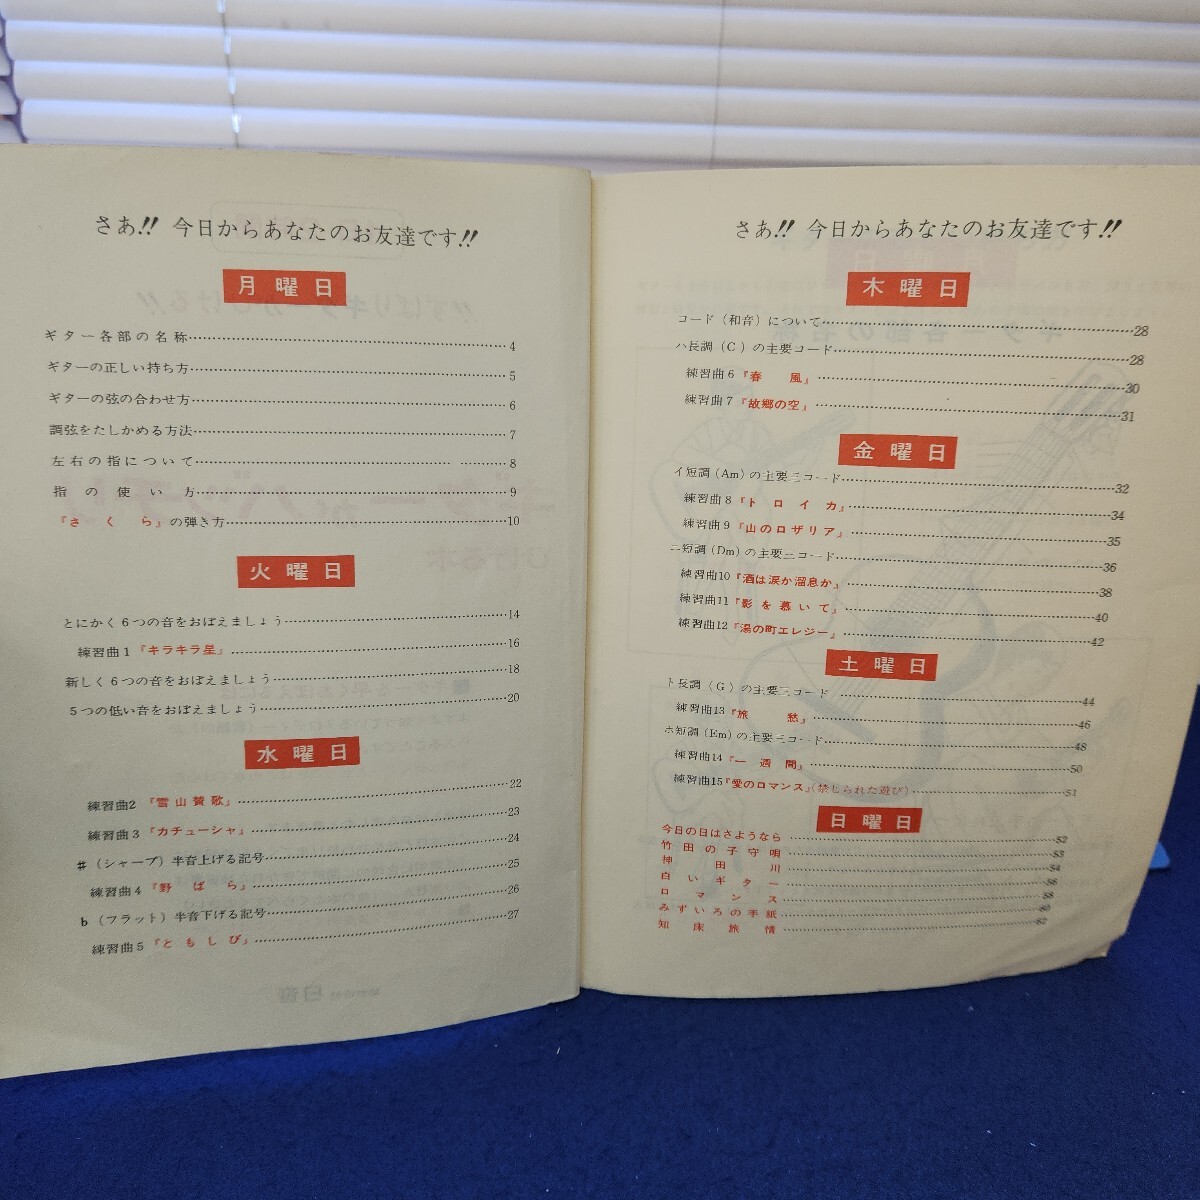 さあ!! 今日からあなたのお友達です!!
月曜日
ギター各部の名称……4
ギターの正しい持ち方……5
ギターの弦の合わせ方……6
調弦をたしかめる方法……7
左右の指について……8
指の使い方……9
『さくら』の弾き方……10
火曜日
とにかく6つの音をおぼえましょう……14
練習曲1『キラキラ星』……16
新しく6つの音をおぼえましょう……18
5つの低い音をおぼえましょう……20
水曜日
練習曲2『雪山賛歌』……22
練習曲3『カチューシャ』……23
♯(シャープ)半音上げる記号……24
練習曲4『野ばら』……25
b(フラット)半音下げる記号……26
練習曲5『ともしび』……27
さあ!! 今日からあなたのお友達です!!
木曜日
コード(和音)について……28
ハ長調(C)の主要コード……28
練習曲6『春風』……30
練習曲7『故郷の空』……31
金曜日
イ短調(Am)の主要三コード……32
練習曲8『トロイカ』……34
練習曲9『山のロザリア』……35
ニ短調(Dm)の主要三コード……36
練習曲10『酒は涙か溜息か』……38
練習曲11『影を慕いて』……40
練習曲12『湯の町エレジー』……42
土曜日
ト長調(G)の主要三コード……44
練習曲13『旅愁』……46
ホ短調(Em)の主要三コード……48
練習曲14『一週間』……50
練習曲15『愛のロマンス』(禁じられた遊び)……51
日曜日
今日の日はさようなら……52
竹田の子守唄……53
神田川……54
白いギター……56
ロマンス……58
みずいろの手紙……
知床旅情……62